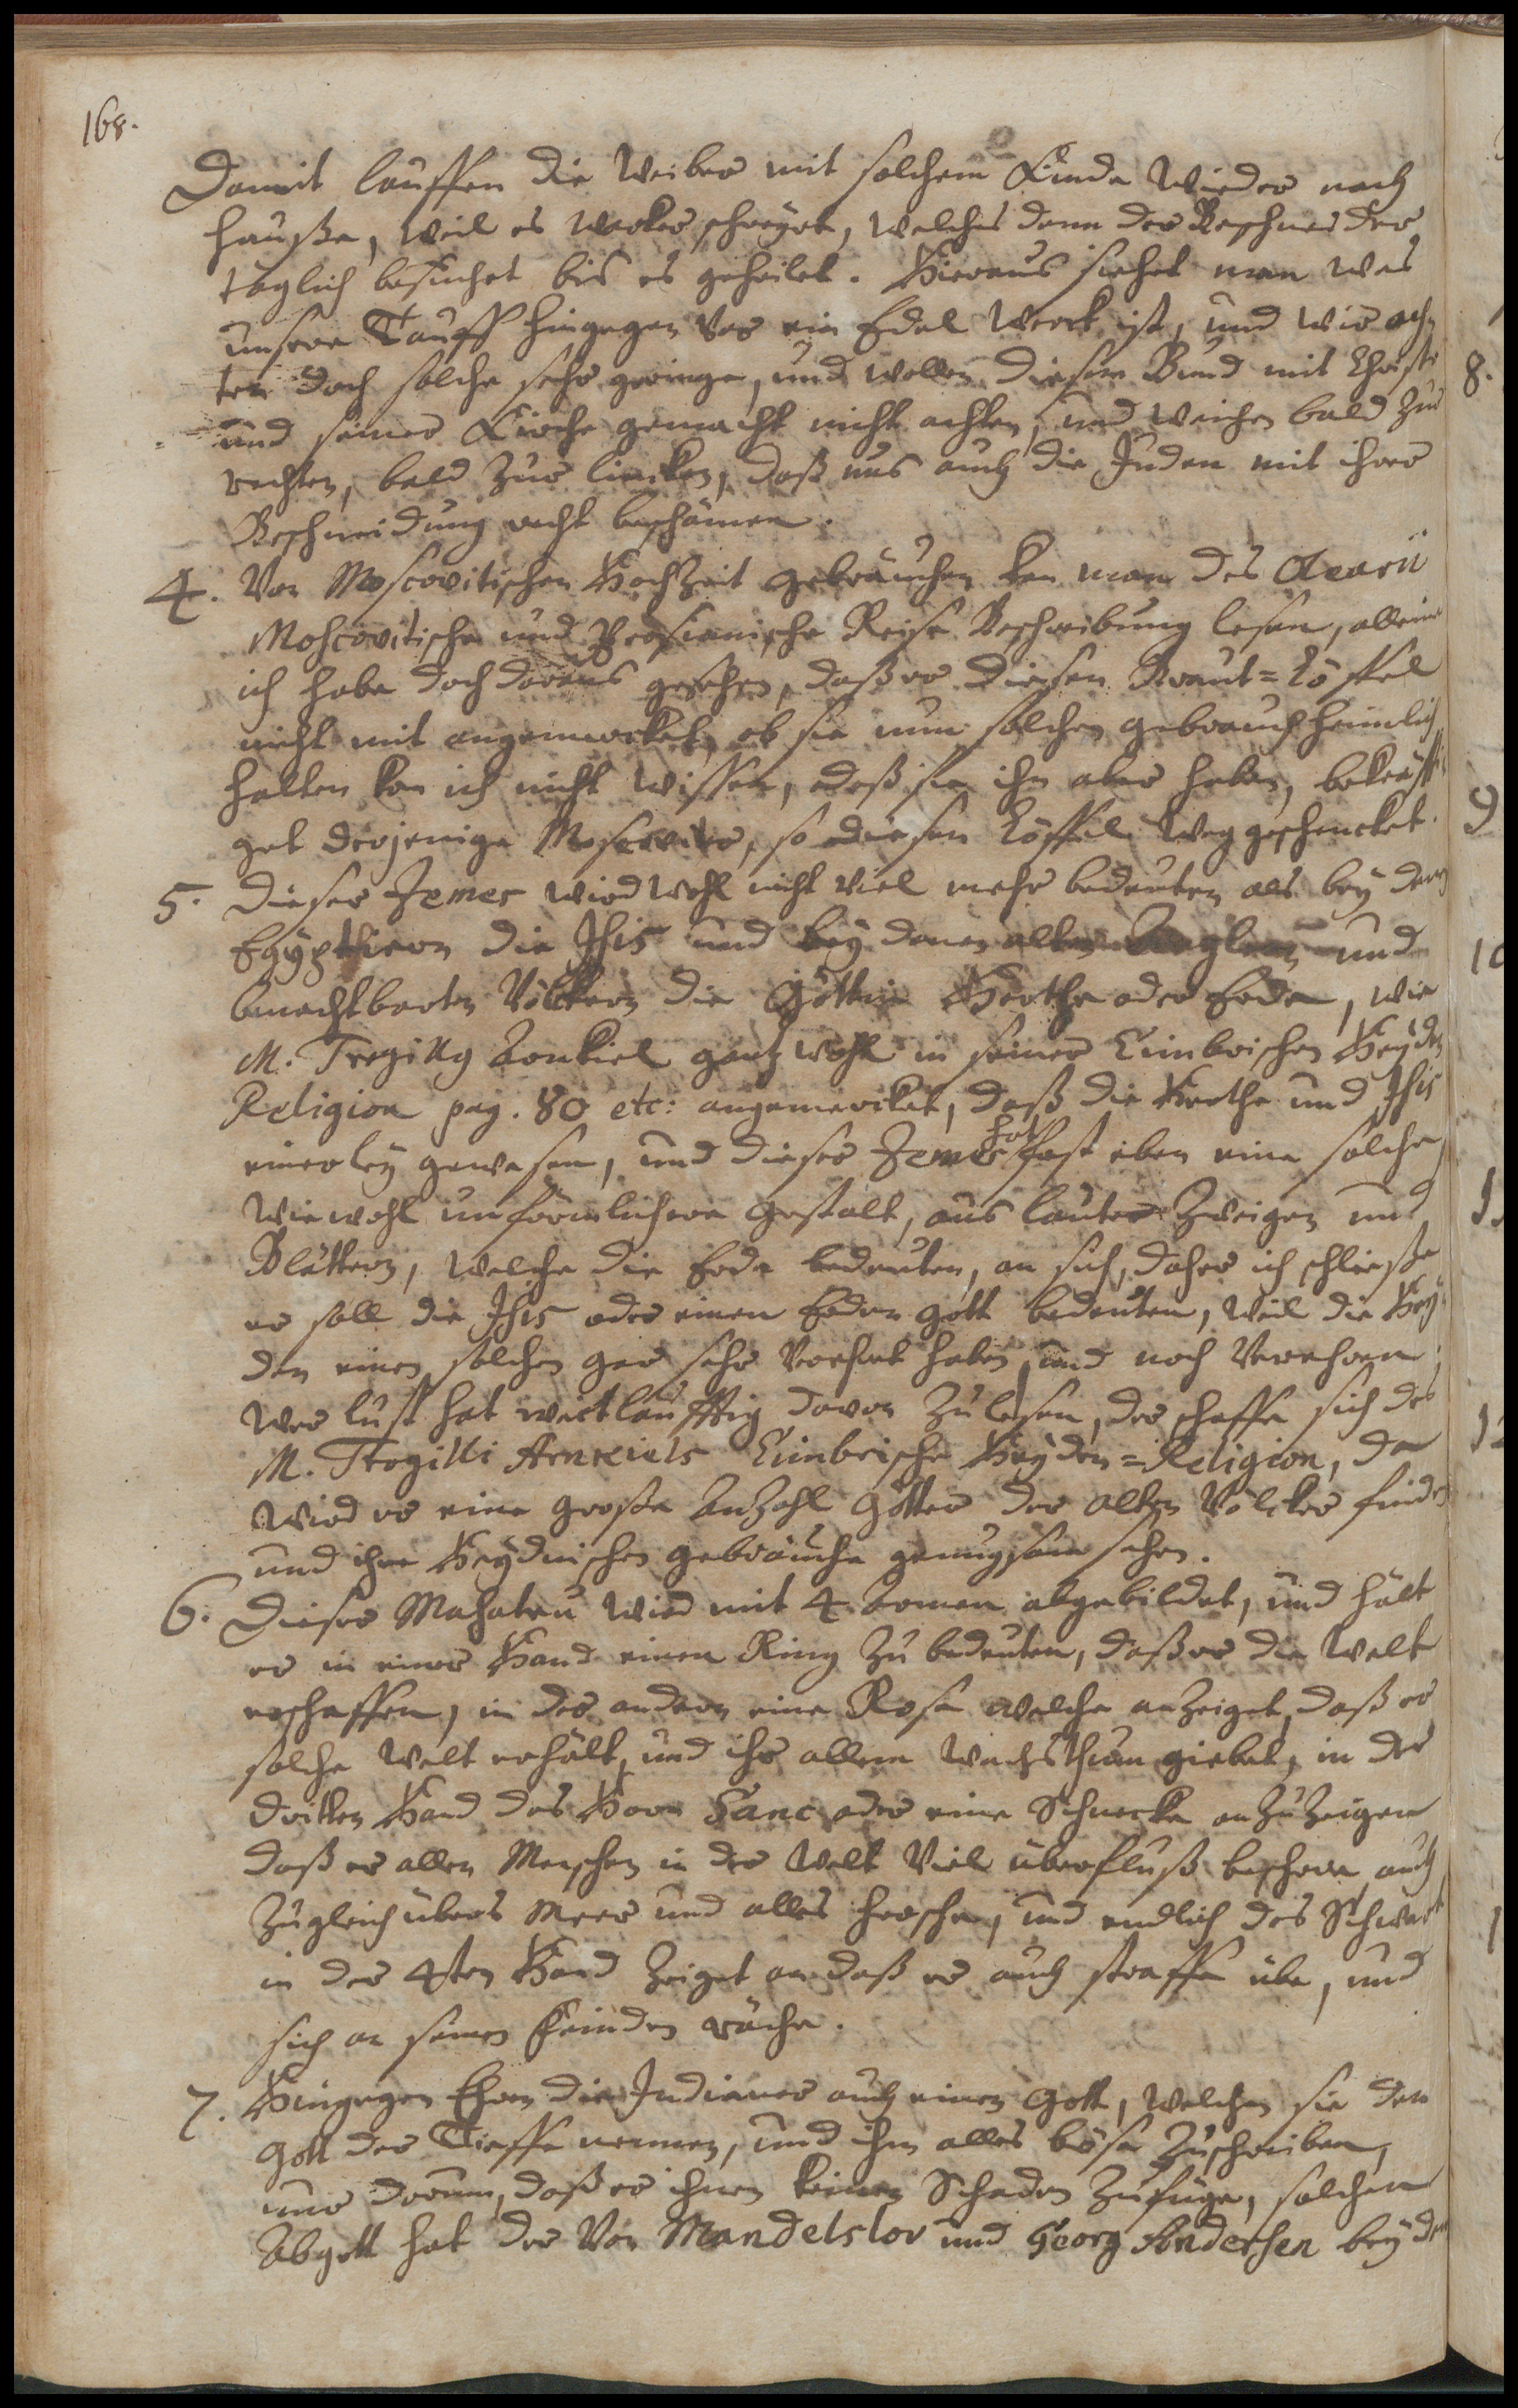 168.
Damit lauffen die Weiber mit solchem Kinde wieder nach
Hauße, weil es wacker schreyet, welches denn der Beschneider
täglich besuchet bis es geheilet. Hieraus siehet man was
unsere Tauff hingegen vor ein Edel Werck ist, und wir ach-
ten doch solche sehr geringe, und wollen diesen Bund mit Christo
und seiner Kirche gemacht nicht achten, und weichen bald zur
rechten, bald zur lincken, daß uns auch die Juden mit ihrer
Beschneidung recht beschämen.
4. Von Moscovitischen Hochzeit gebräuchen kan man des Olearii
Moscovitische und Persianische Reise Beschreibung lesen, alleine
ich habe doch daraus gesehen, daß er diesen Braut=Löffel
nicht mit angemercket, ob sie nun solchen gebrauch heimlich
halten kan ich nicht wissen, daß sie ihn aber haben, bekräffti-
get derjenige Moscoviter, so diesen Löffel weggeschencket.
5. Dieser Jemes wird wohl nicht viel mehr bedeuten als bey denen
Egyptiern die Isis und bey denen alten und
benachtbarten Völckern die Göttin Hertha oder Erde, wie
M. Trogilly Arnkiel gantz wohl in seiner Cimbrischen Heyden
Religion pag. 80 etc: angemercket, daß die Hertha und Isis
einerley gewesen, und dieser Jemes hat fast eben eine solche
wiewohl unförmlichere gestalt, aus lauter Zweigen und
Blättern, welche die Erde bedeuten, an sich, daher ich schließe
er soll die Isis oder einen Erden gott bedeuten, weil die Hey-
den einen solchen gar sehr verehret haben, und noch verehren,
wer lust hat weitläufftig davon zu lesen, der schaffe sich des
M. Trogilli Arnkiels Cimbrische Heyden=Religion, da
wird er eine große Anzahl Götter der alten Völcker finden
und ihre Heydnischen gebräuche genugsam sehen.
6. Dieser Mahateu wird mit 4 Armen abgebildet, und hält
er in einer Hand einen Ring zu bedeuten, daß er die Welt
erschaffen, in der andern eine Rose welche anzeiget, daß er
solche Welt erhält, und ihr allem Wachsthum giebet, in der
dritten Hand das Horn Canc oder eine Schnecke anzuzeigen
daß er allen Menschen in der Welt viel überfluß beschere, auch
zugleich übers Meer und alles hersche, und endlich das Schwert
in der 4ten Hand zeiget an daß er auch straffe übe, und
sich an seinen Feinden räche.
7. Hingegen Ehren die Indianer auch einen Gott, welchen sie den
Gott der Tieffe nennen, und ihm alles böse zuschreiben,
nur darum, daß er ihnen keinen Schaden zufüge, solchen
Abgott hat der von Mandelslov und Georg Andersen bey den
8.
9
10